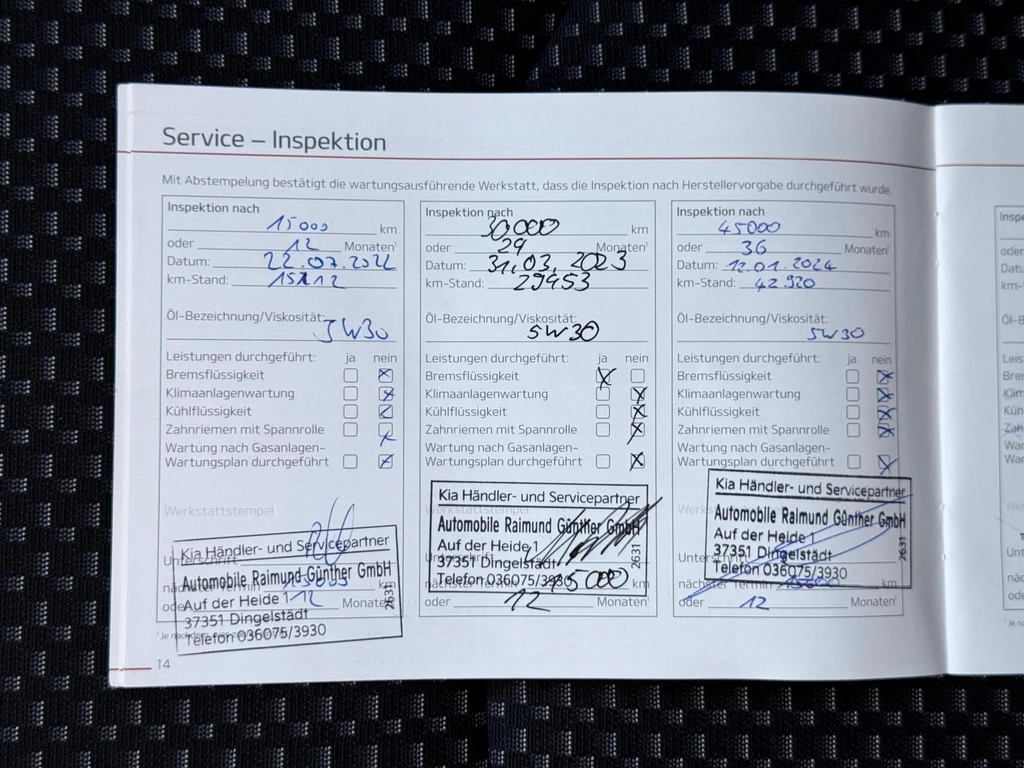 Service – Inspektion
Mit Abstempelung bestätigt die wartungsausführende Werkstatt, dass die Inspektion nach Herstellervorgabe durchgeführt wurde.
Inspektion nach
15000 km
oder 12 Monaten¹
Datum: 22.07.2022
km-Stand: 15112
Öl-Bezeichnung/Viskosität:
5W30
Leistungen durchgeführt: ja nein
Bremsflüssigkeit
Klimaanlagenwartung
Kühlflüssigkeit
Zahnriemen mit Spannrolle
Wartung nach Gasanlagen-
Wartungsplan durchgeführt
Werkstattstempel
Kia Händler- und Servicepartner
Automobile Raimund Günther GmbH
Auf der Heide 1
37351 Dingelstädt
Telefon 036075/3930
2631
km
oder 12 Monaten
Inspektion nach
30000 km
oder 29 Monaten¹
Datum: 31.03.2023
km-Stand: 29453
Öl-Bezeichnung/Viskosität:
5W30
Leistungen durchgeführt: ja nein
Bremsflüssigkeit
Klimaanlagenwartung
Kühlflüssigkeit
Zahnriemen mit Spannrolle
Wartung nach Gasanlagen-
Wartungsplan durchgeführt
Werkstattstempel
Kia Händler- und Servicepartner
Automobile Raimund Günther GmbH
Auf der Heide 1
37351 Dingelstädt
Telefon 036075/3930
2631
nächster Termin 45000 km
oder 12 Monaten¹
Inspektion nach
45000 km
oder 36 Monaten¹
Datum: 12.01.2024
km-Stand: 42.920
Öl-Bezeichnung/Viskosität:
5W30
Leistungen durchgeführt: ja nein
Bremsflüssigkeit
Klimaanlagenwartung
Kühlflüssigkeit
Zahnriemen mit Spannrolle
Wartung nach Gasanlagen-
Wartungsplan durchgeführt
Werkstattstempel
Kia Händler- und Servicepartner
Automobile Raimund Günther GmbH
Auf der Heide 1
37351 Dingelstädt
Telefon 036075/3930
2631
nächster Termin km
oder 12 Monaten¹
14